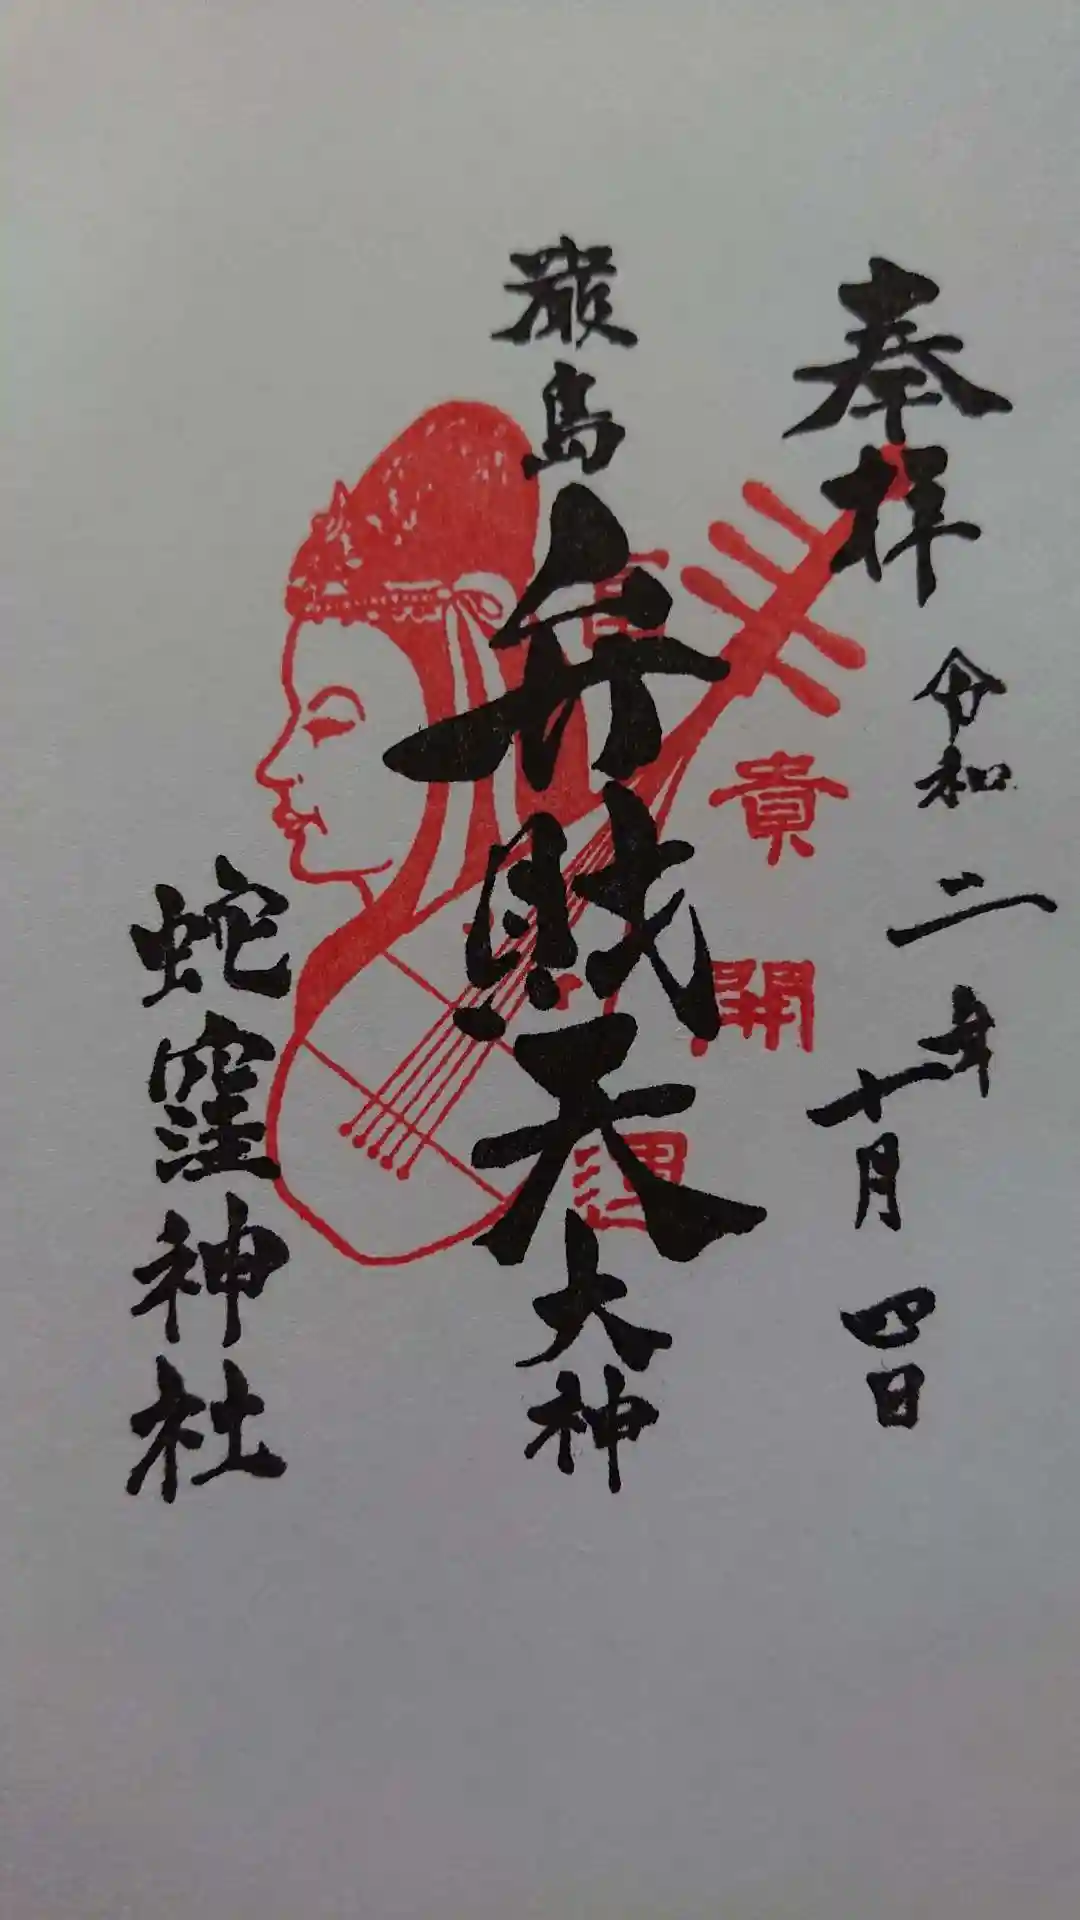 奉拝
令和二年十月四日
厳島
弁財天
大神
富
貴
開
運
蛇窪神社